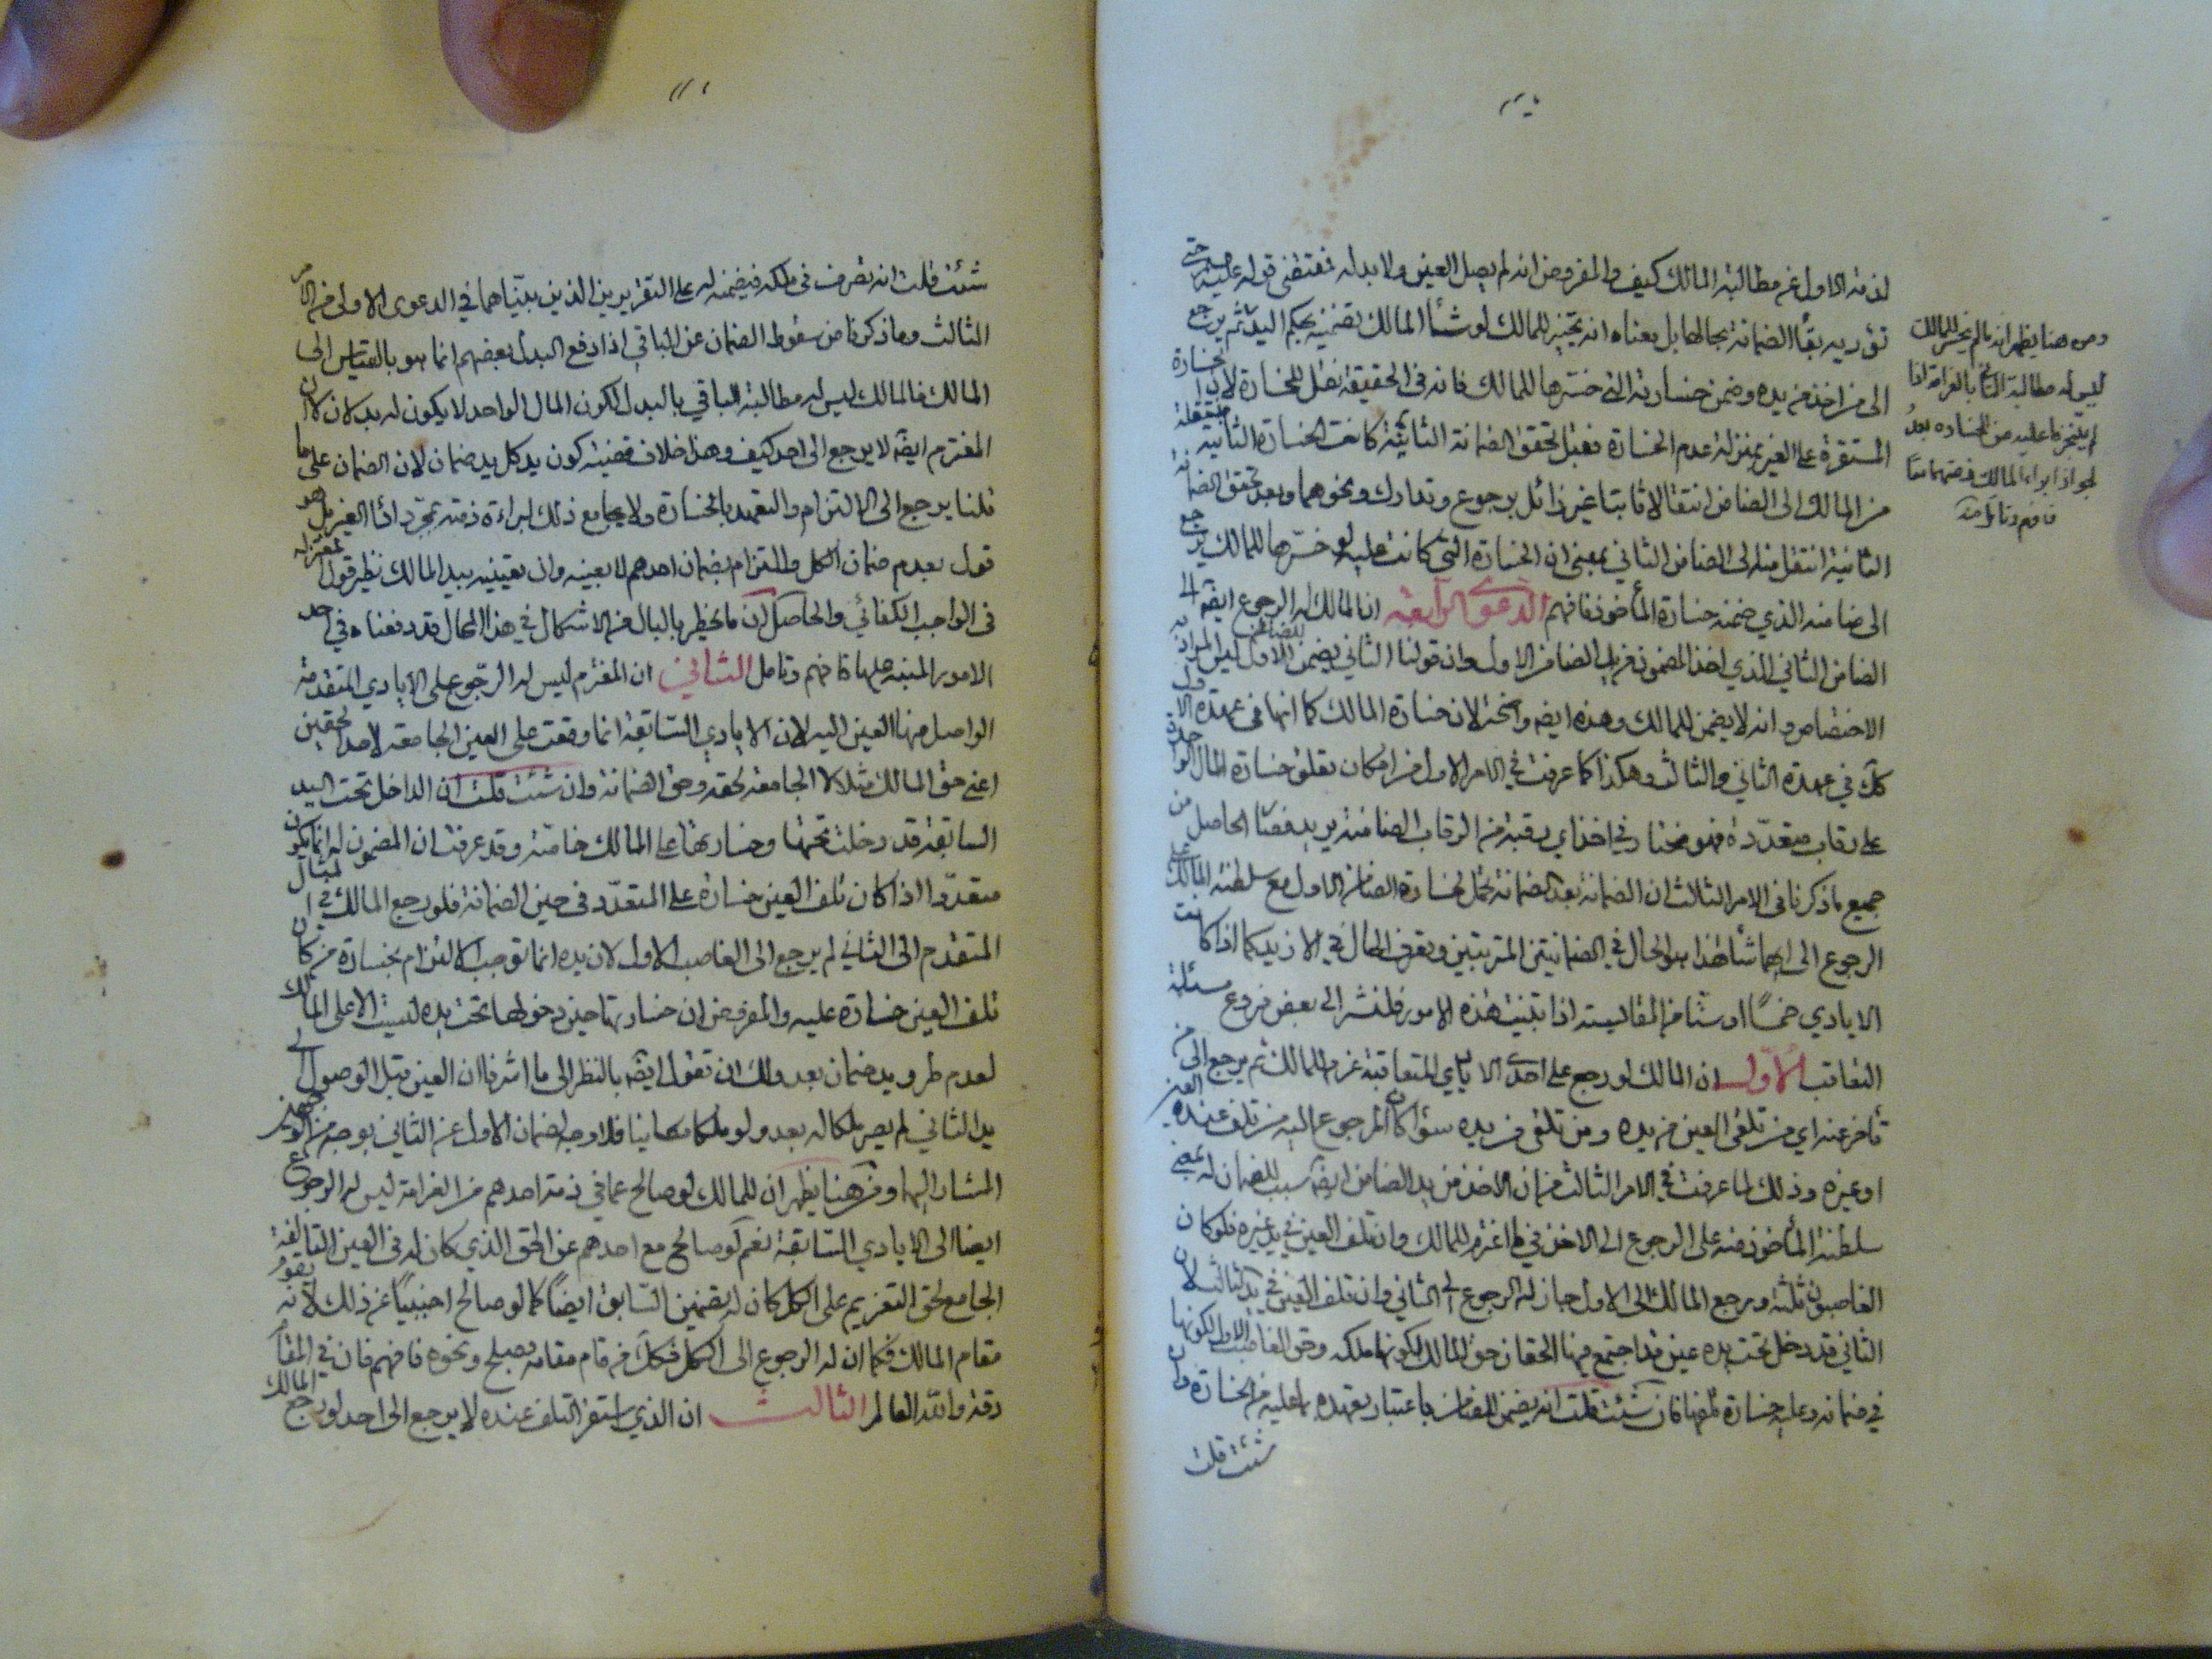 لذمة الاول عن مطالبة المالك كيف والمفروض انه لم يصل العين ولا بدله فمقتضى قوله عليه حتى
تؤديه بقاء الضمانة بحالها بل معناه انه يتخير للمالك لو شاء المالك تضمينه بحكم اليد ثم يرجع
الى من اخذ من يده وضمن خسارته التي خسرها للمالك فانه في الحقيقة نقل للخسارة لان الخسارة
المستقرة على الغير بمنزلة عدم الخسارة فقبل تحقق الضمانة الثانية كانت الخسارة الثانية منتقلة
من المالك الى الضامن انتقالا ثابتا غير زائل برجوع وتدارك ونحوهما وبعد تحقق الضمانة
الثانية انتقل منه الى الضامن الثاني بمعنى ان الخسارة التي كانت عليه لو خسرها للمالك يرجع
الى ضامنه الذي ضمنه خسارة المأخوذ فافهم الدعوى الرابعة ان المالك له الرجوع ايضا الى
الضامن الثاني الذي اخذ المضمون من يد الضامن الاول وان قولنا الثاني يضمن للاول ليس المراد به
الاختصاص وانه لا يضمن للمالك وهذه ايضا واضحة لان خسارة المالك كما انها في عهدة الاول
كك في عهدة الثاني والثالث وهكذا كما عرفت في الامر الاول من امكان تعلق خسارة المال الواحدة
على رقاب متعددة فهو مختار في اخذ اي رقبة من الرقاب الضامنة يريد فصار الحاصل من
جميع ما ذكرنا في الامر الثالث ان الضمانة بعد الضمانة تحمل لخسارة الضامن الاول مع سلطنة المالك على
الرجوع الى ايهما شاء هذا هو الحال في الضمانتين المترتبتين ويعرف الحال في الازيد كما اذا كانت
الايادي خمسا او ستا من المقايسة اذا تبينت هذه الامور فلنشر الى بعض فروع مسئلة
التعاقب الاول ان المالك لو رجع على احدى الايادي المتعاقبة غرم للمالك ثم يرجع الى من
تأخر عنه اي من تلقى العين من يده ومن تلقى من يده سواء كان المرجوع اليه من تلف عنده العين
او غيره وذلك لما عرفت في الامر الثالث من ان الاخذ من يد الضامن ايضا سبب للضمان له بمعنى
سلطنة المأخوذ منه على الرجوع الى الاخذ في ما اغترم للمالك وان تلف العين في يد غيره فلو كان
الغاصبون ثلثة ورجع المالك الى الاول جاز له الرجوع الى الثاني وان تلف العين في يد الثالث لان
الثاني قد دخل تحت يده عين قد اجتمع فيها الحقان حق المالك لكونها ملكه وحق الغاصب الاول لكونها
في ضمانه وعليه خسارة تلفها فان شئت قلت انه يضمن للضامن باعتبار تعهده بما عليه من الخسارة وان
شئت قلت
ومن هنا يظهر انه ما لم يخسر للمالك
ليس له مطالبة بالغرامة اذا
لم يتنجز ما عليه من الخسارة بعد
لجواز ابراء المالك ذمتهما معا
فافهم وتأمل منه
شئت قلت انه تصرف في ملكه فيضمنه له على التقريرين الذين بيناهما في الدعوى الاولى من الامر
الثالث وما ذكرنا من سقوط الضمان عن الباقي اذا دفع البدل بعضهم انما هو بالقياس الى
المالك فالمالك ليس له مطالبة الباقي بالبدل لكون المال الواحد لا يكون له بدلان لا ان
المغترم ايضا لا يرجع الى احد كيف وهذا خلاف قضية كون يد كل يد ضمان لان الضمان على ما
قلنا يرجع الى الالتزام والتعهد بالخسارة ولا يجامع ذلك ابراءة ذمته بمجرد اداء الغير بل هو
قول بعدم ضمان الكل والتزام بضمان احدهم لا بعينه وان تعيينه بيد المالك نظير قول المعتزلة
في الواجب الكفائي والحاصل ان ما يخطر بالبال من الاشكال في هذا المجال قد دفعناه في احد
الامور المنبه عليها فافهم وتامل الثاني ان المغترم ليس له الرجوع على الايادي المتقدمة
الواصل منها العين اليه لان الايادي السابقة انما وقعت على العين الجامعة لاحد الحقين
اعني حق المالك مثلا لا الجامعة لحقه وحق الضمانة وان شئت قلت ان الداخل تحت اليد
السابقة قد دخلت تحتها وخسارتها على المالك خاصة وقد عرفت ان المضمون له انما يكون
متعددا اذا كان تلف العين خسارة على المتعدد في حين الضمانة فلو رجع المالك في المثال
المتقدم الى الثاني لم يرجع الى الغاصب الاول لان يده انما توجب الالتزام بخسارة من كان
تلف العين خسارة عليه والمفروض ان خسارتها حين دخولها تحت يده ليست الا على المالك
لعدم طرو يد ضمان بعد ولك ان تقول ايضا بالنظر الى ما اشرنا ان العين قبل الوصول الى
يد الثاني لم يصر ملكا له بعد ولو ملكا فلا وجه لضمان الاول عن الثاني بوجه من الوجهين
المشار اليهما ومن هنا يظهر ان المالك لو صالح عما في ذمة احدهم من الغرامة ليس له الرجوع
ايضا الى الايادي السابقة نعم لو صالح مع احدهم عن الحق الذي كان له في العين التالفة
الجامع لحق التغريم على الكل كان له تضمين السابق ايضا كما لو صالح اجنبيا عن ذلك لانه يقوم
مقام المالك فكما ان له الرجوع الى الكل فكك من قام مقامه بصلح ونحوه فافهم فان في المقام
دقة والله العالم الثالث ان الذي استقر التلف عنده لا يرجع الى احد لو رجع المالك